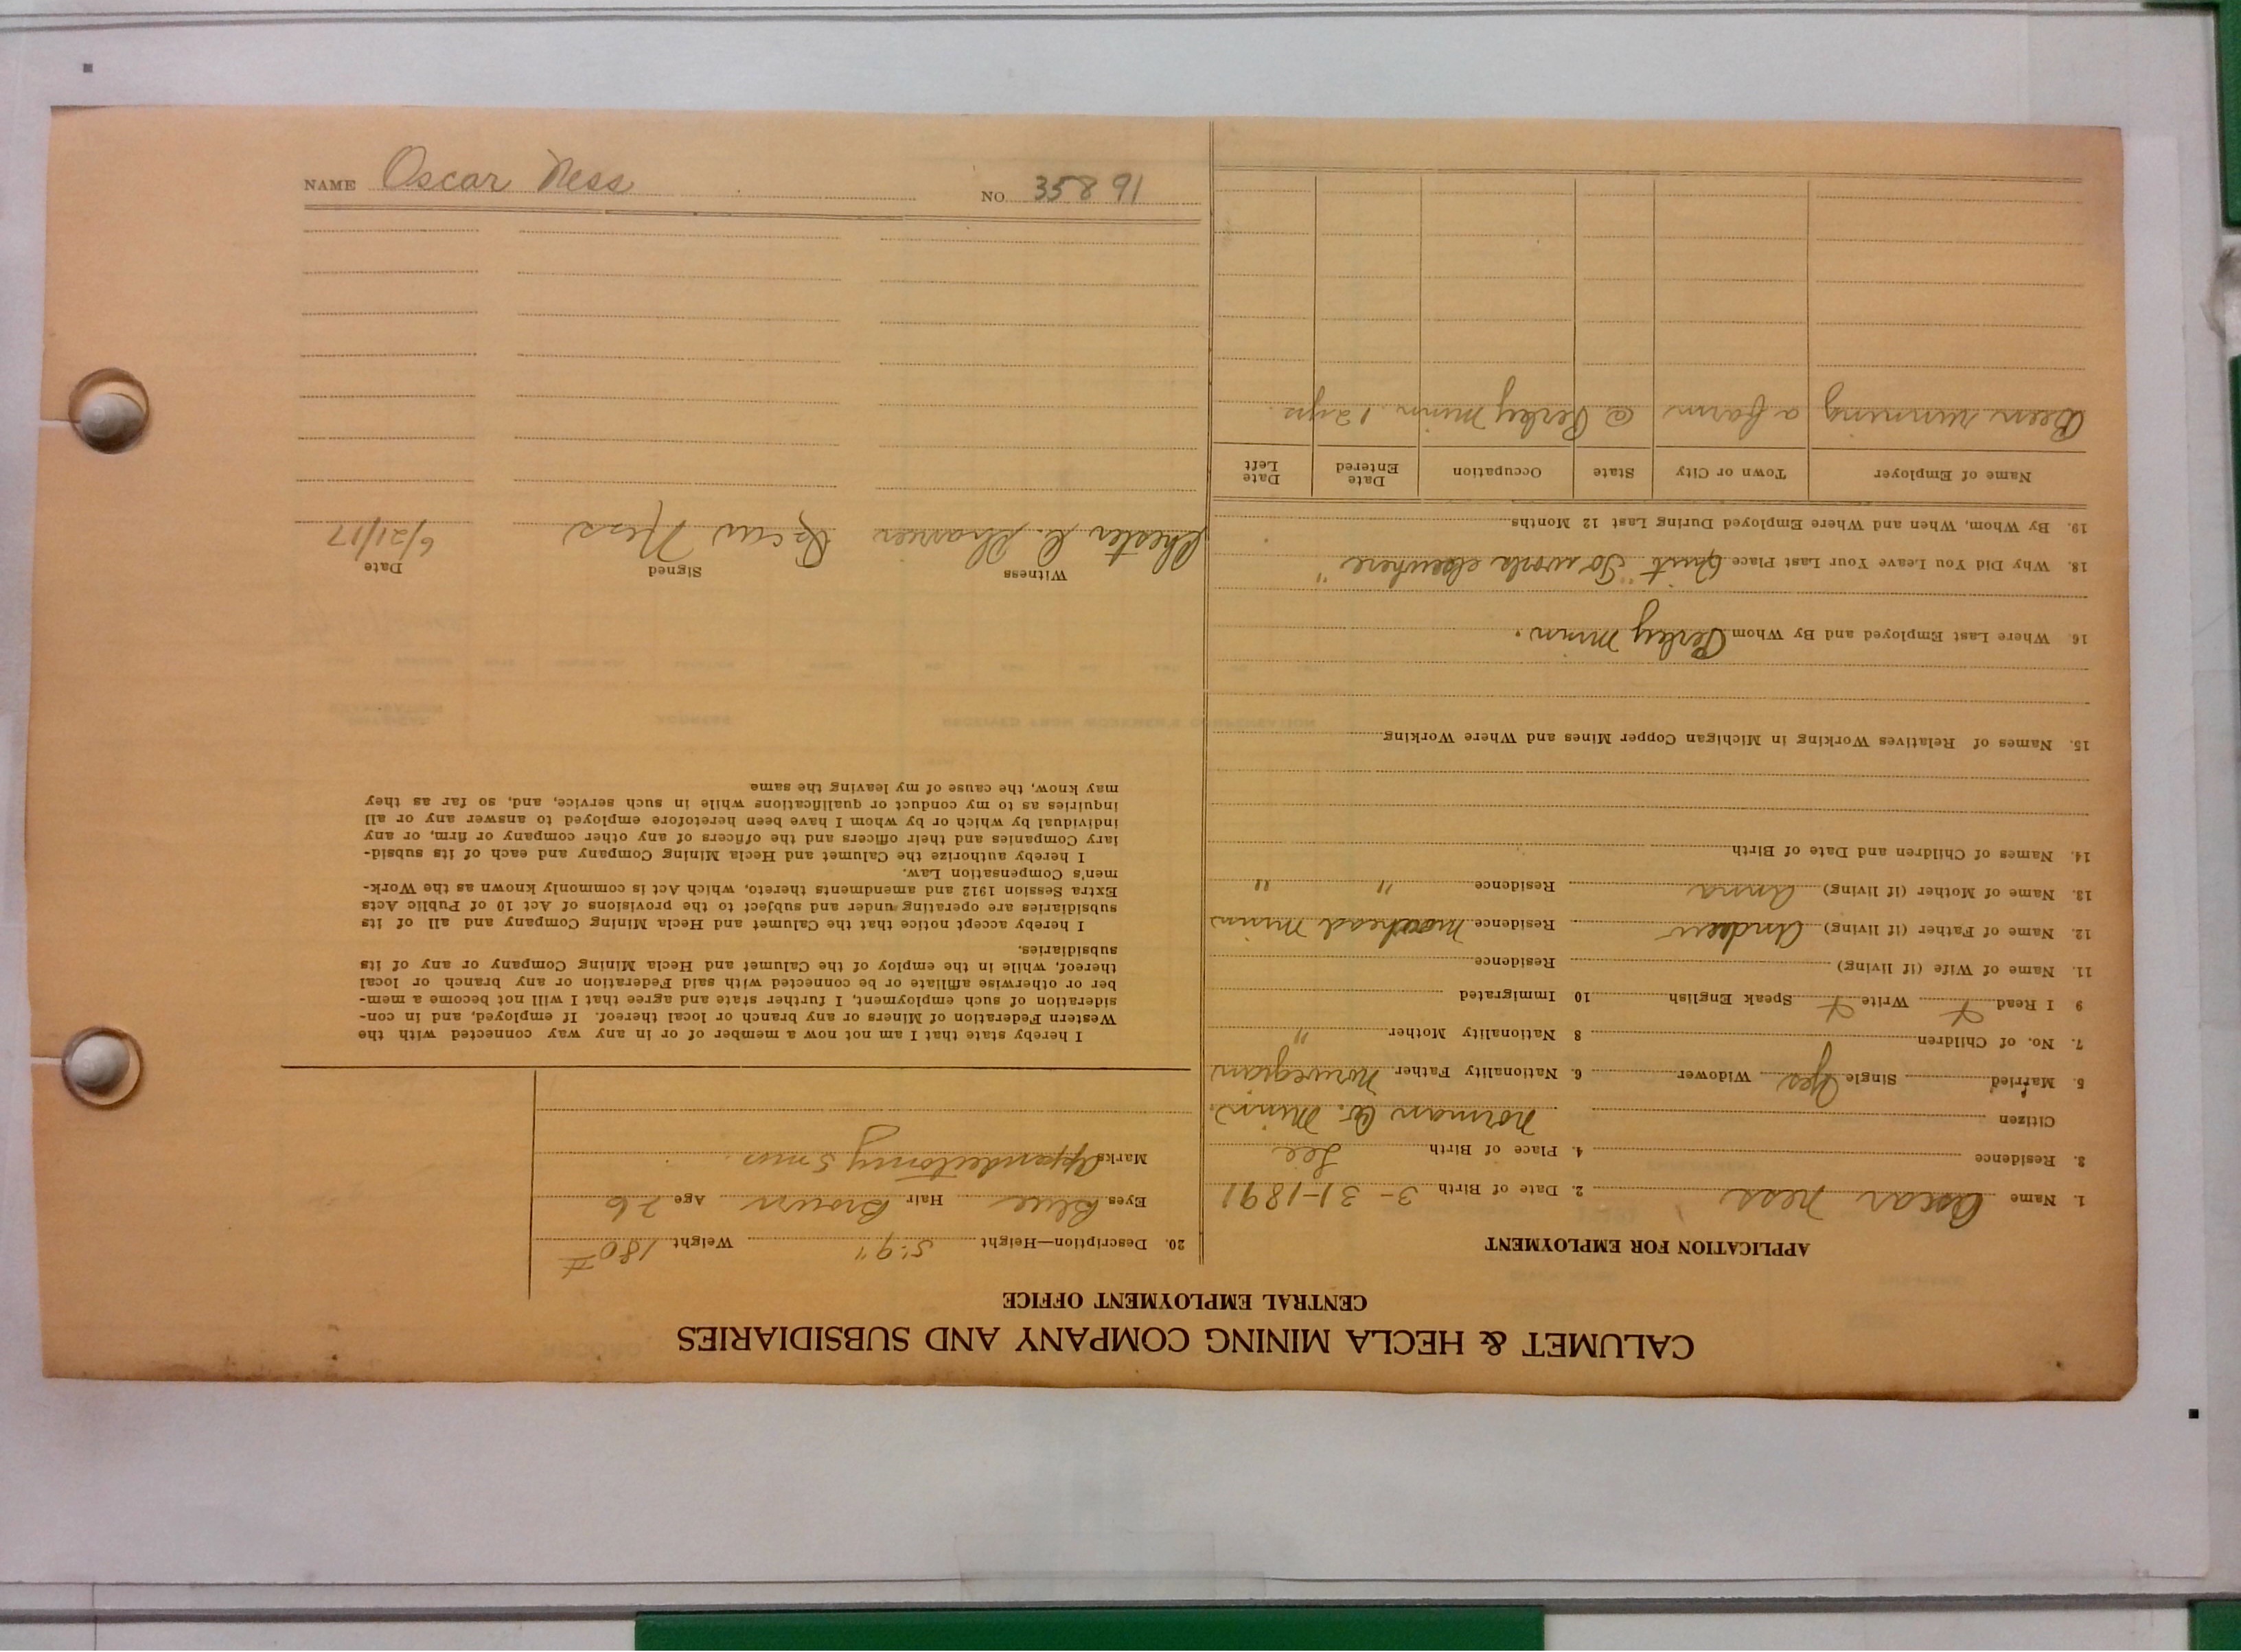 CALUMET & HECLA MINING COMPANY AND SUBSIDIARIES
CENTRAL EMPLOYMENT OFFICE
APPLICATION FOR EMPLOYMENT
1. Name Oscar Ness 2. Date of Birth 3-31-1891
3. Residence 4. Place of Birth Lee
Citizen Norman Co. Minn.
5. Married Single Yes Widower 6. Nationality Father Norwegian
7. No. of Children 8 Nationality Mother "
9 I Read Write Speak English 10 Immigrated
11. Name of Wife (if living) Residence
12. Name of Father (if living) Andrew Residence Moorhead Minn
13. Name of Mother (if living) Anna Residence " "
14. Names of Children and Date of Birth
15. Names of Relatives Working in Michigan Copper Mines and Where Working
16. Where Last Employed and By Whom Perley Minn.
18. Why Did You Leave Your Last Place Quit "To work elsewhere"
19. By Whom, When and Where Employed During Last 12 Months
Name of Employer Town or City State Occupation Date Entered Date Left
Been running a farm @ Perley Minn. 12 yrs.
20. Description—Height 5'.9" Weight 180 #
Eyes Blue Hair Brown Age 26
Marks
I hereby state that I am not now a member of or in any way connected with the
Western Federation of Miners or any branch or local thereof. If employed, and in con-
sideration of such employment, I further state and agree that I will not become a mem-
ber or otherwise affiliate or be connected with said Federation or any branch or local
thereof, while in the employ of the Calumet and Hecla Mining Company or any of its
subsidiaries.
I hereby accept notice that the Calumet and Hecla Mining Company and all of its
subsidiaries are operating under and subject to the provisions of Act 10 of Public Acts
Extra Session 1912 and amendments thereto, which Act is commonly known as the Work-
men's Compensation Law.
I hereby authorize the Calumet and Hecla Mining Company and each of its subsid-
iary Companies and their officers and the officers of any other company or firm, or any
individual by which or by whom I have been heretofore employed to answer any or all
inquiries as to my conduct or qualifications while in such service, and, so far as they
may know, the cause of my leaving the same
Witness Signed Date
Chester C. Oscar Ness 6/21/17
NAME Oscar Ness NO. 35891